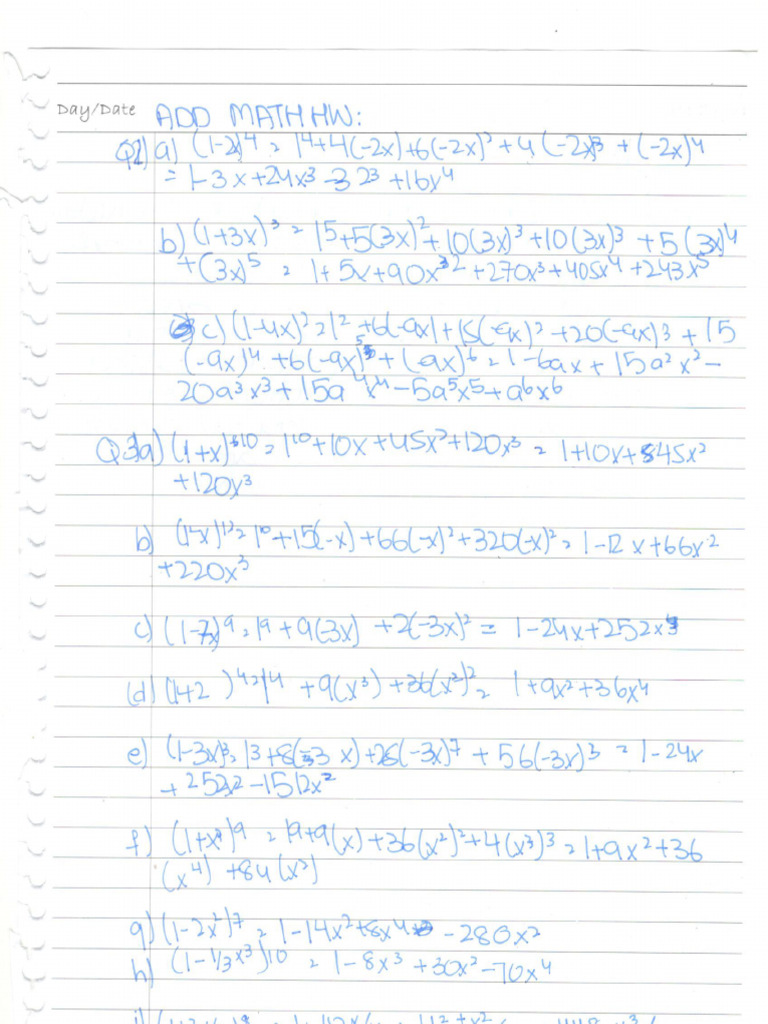 Day/Date ADD MATH HW:
Q2) a) (1-2)⁴ = 1⁴+4(-2x)+6(-2x)²+4(-2x)³ + (-2x)⁴
= 1-3x+24x³-32³+16x⁴
b) (1+3x)³ = 15+5(3x)²+10(3x)³+10(3x)³ + 5(3x)⁴
+(3x)⁵ = 1+5x+90x² +270x³+405x⁴+243x⁵
c) (1-4x)² = 1² +6(-ax)+15(-ax)²+20(-ax)³ + 15
(-ax)⁴ +6(-ax)⁵+(-ax)⁶ = 1-6ax + 15a²x² -
20a³x³+15a⁴x⁴-5a⁵x⁵+a⁶x⁶
Q3a) (1+x)¹⁰ = 1¹⁰+10x+45x²+120x³ = 1+10x+45x²
+120x³
b) (1-x)¹² = 1⁰+15(-x)+66(-x)²+320(-x)² = 1-12x+66x²
+220x³
c) (1-7x)⁹ = 1⁹ + 9(-3x) +2(-3x)² = 1-24x+252x³
(d) (1+2 )⁴ = 1⁴ +9(x³)+36(x²)² = 1+9x²+36x⁴
e) (1-3x)³ = 1³+8(-3 x)+28(-3x)⁷ + 56(-3x)³ = 1-24x
+252x²-1512x²
f) (1+x²)⁹ = 19+9(x)+36(x²)²+4(x³)³ = 1+9x²+36
(x⁴) +84(x³)
g) (1-2x²)⁷ = 1-14x²+8x⁴ -280x²
h) (1-1/3x³)¹⁰ = 1-8x³+30x²-70x⁴